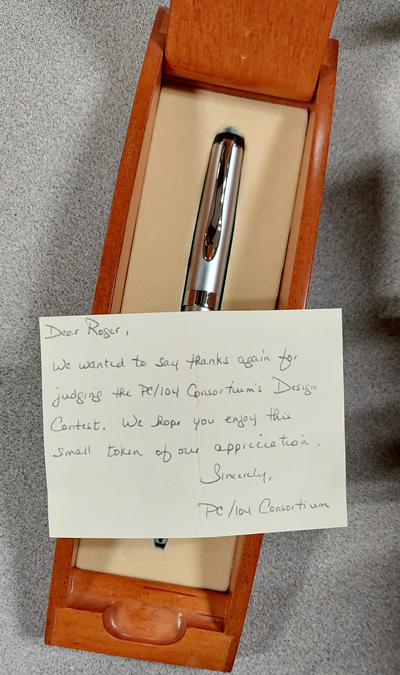 Dear Roger,
We wanted to say thanks again for
judging the PC/104 Consortium's Design
Contest. We hope you enjoy this
small token of our appriciation.
Sincerely,
PC/104 Consortium